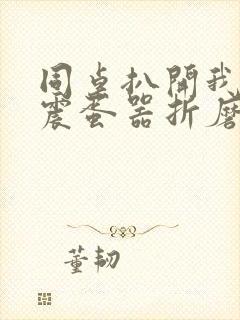 同桌扒開我
震蛋器折磨
董韌